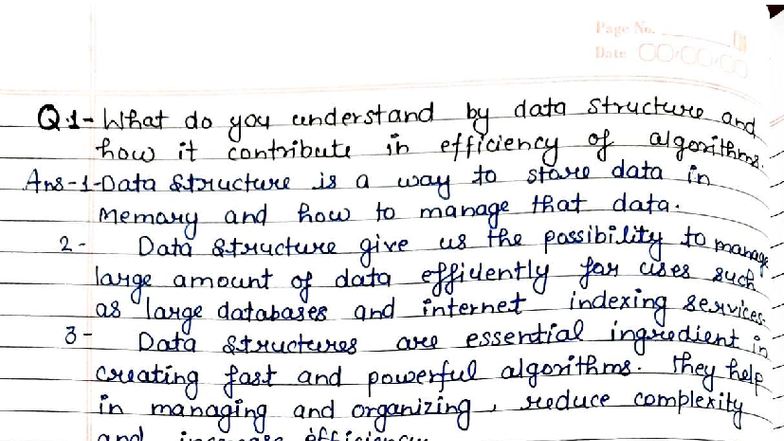 Page No.
Date
Q1- What do you understand by data structure and
how it contribute in efficiency of algorithms.
Ans-1- Data Structure is a way to store data in
Memory and how to manage that data.
2- Data Structure give us the possibility to manage
large amount of data efficiently for uses such
as large databases and internet indexing services.
3- Data Structures are essential ingredient in
creating fast and powerful algorithms. They help
in managing and organizing, reduce complexity
and increase efficiency